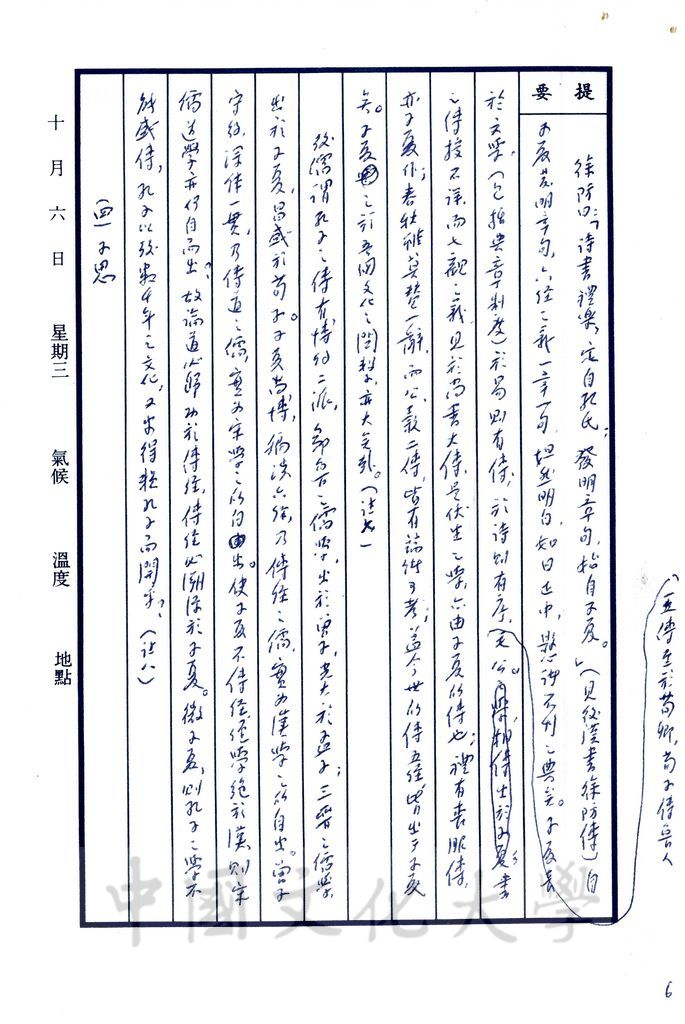 提要
徐防曰：「詩書禮樂，定自孔氏；發明章句，始自子夏。」（見後漢書徐防傳）自
子夏發明章句，六經之義一章一句，坦然明白，如日正中，懸諸不刊之典矣。子夏長
於文學，（包括典章制度）於易則有傳，於詩則有序，（毛公之學相傳出於子夏）書
五傳至於荀卿，荀子傳魯人
之傳授不詳，而七觀之義，見於尚書大傳，是伏生之學亦由子夏所傳也；禮有喪服傳，
亦子夏作；春秋雖莫贊一辭，而公穀二傳，皆有端緒可考；蓋今世所傳五經皆出于子夏
矣。子夏之於吾國文化之關鍵，亦大矣哉。（註七）
後儒謂孔子之傳有博約二派，鄒魯之儒學，出於曾子，光大於孟子；三晉之儒學，
出於子夏，昌盛於荀子。子夏尚博，徧洽六經，乃傳經之儒，實為漢學之所自出。曾子
守約，深体一貫，乃傳道之儒，實為宋學之所自出。使子夏不傳經，經學絕於漢，則宋
儒道學亦何自而出？故論道必歸功於傳經，傳經必溯源於子夏。微子夏，則孔子之學不
能盛傳，孔子以後數千年之文化，又安得賴孔子而開乎？（註八）
（四）子思
十月六日 星期三 氣候 溫度 地點
中國文化大學
6